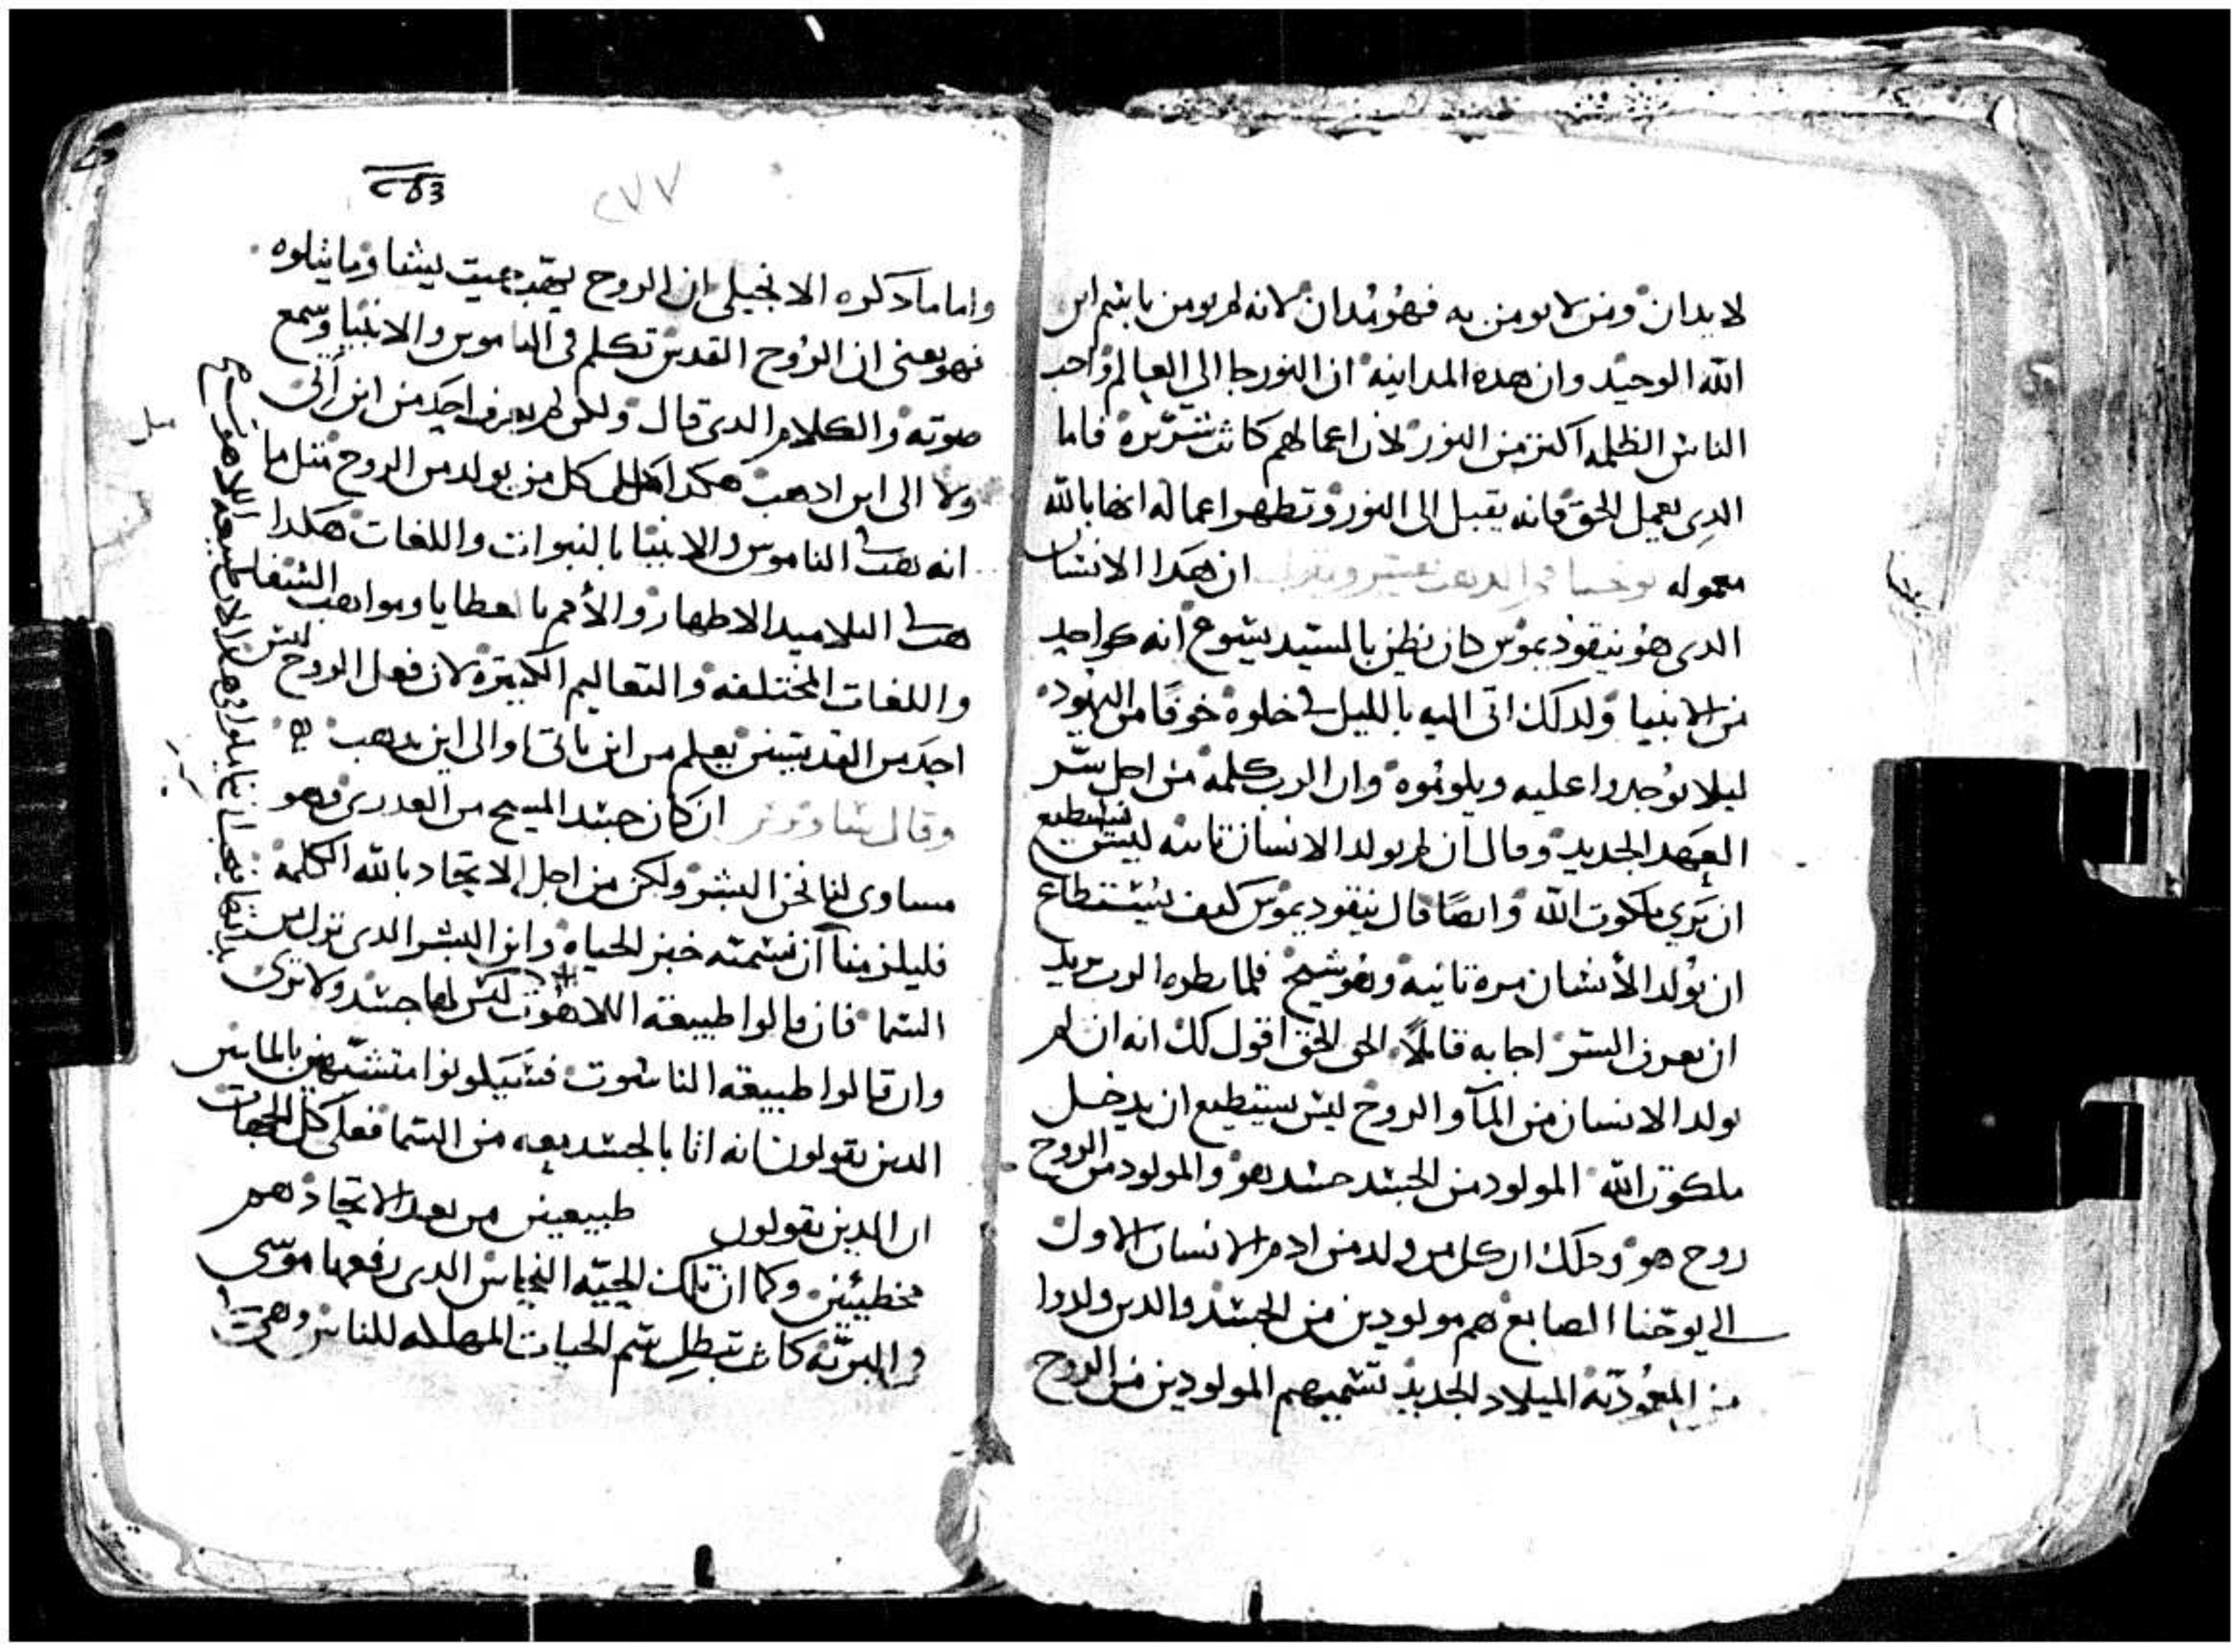 لا يدان ومن لا يومن به فهو مدان لانه لم يومن باسم ابن
الله الوحيد وان هده المداينه ان النور جا الي العالم واحب
الناس الظلمه اكتر من النور لان اعمالهم كانت شريره فاما
الدي يعمل الحق فانه يقبل الى النور وتظهر اعماله انها بالله
معموله ان هدا الانسان
الدي هو نيقوديموس كان يظن بالسيد يسوع انه كواحد
من الانبيا ولدلك اتى اليه بالليل في خلوه خوفا من اليهود
ليلا يوجدوا عليه ويلوموه وان الرب كلمه من اجل سر
العهد الجديد وقال ان لم يولد الانسان تانيه ليس يستطيع
ان يري ملكوت الله وايضا قال نيقوديموس كيف يستطاع
ان يولد الانسان مره تانيه وهو شيخ فلما نظره الرب يريد
ان يعرف السر اجابه قايلا الحق الحق اقول لك انه ان لم
يولد الانسان من المآ والروح ليس يستطيع ان يدخل
ملكوت الله المولود من الجسد جسد هو والمولود من الروح
روح هو ودلك ان كل من ولد من ادم الانسان الاول
الي يوحنا الصابغ هم مولودين من الجسد والدين ولدوا
من المعوديه الميلاد الجديد تسميهم المولودين من الروح
٢٧٧
واما ما دكره الانجيلي ان الروح يهب حيت يشا وما يتلوه
فهو يعني ان الروح القدس تكلم في الناموس والانبيا وسمع
صوته والكلام الدي قال ولكن لم يعرف احد من اين اتى
ولا الى اين ادهب هكدا كل من يولد من الروح متل ما
انه يهب في الناموس والانبيا بالنبوات واللغات هكدا
هب في التلاميد الاطهار والأمم بالعطايا ومواهب الشفا
واللغات المختلفه والتعاليم الكتيره لان فعل الروح ليس
احد من القديسين يعلم من اين ياتي والى اين يدهب
وقال ان كان جسد المسيح من العدرى فهو
مساوى لنا نحن البشر ولكن من اجل الاتحاد بالله الكلمه
فليلزمنا ان نسمته خبز الحياه وابن البشر الدى نزل من
السما فان قالوا طبيعة اللاهوت ليس لها جسد ولا ترى
وان قالوا طبيعه الناسوت فسيكونوا متشبهين بالناس
الدين يقولون انه اتا بالجسد معه من السما فعلى كل الجهات
ان الدين يقولون طبيعين من بعد الاتحاد هم
مخطيين وكما ان تلك الحيه النحاس الدى رفعها موسى
في البريه كانت تبطل سم الحيات المهلكه للناس وهى